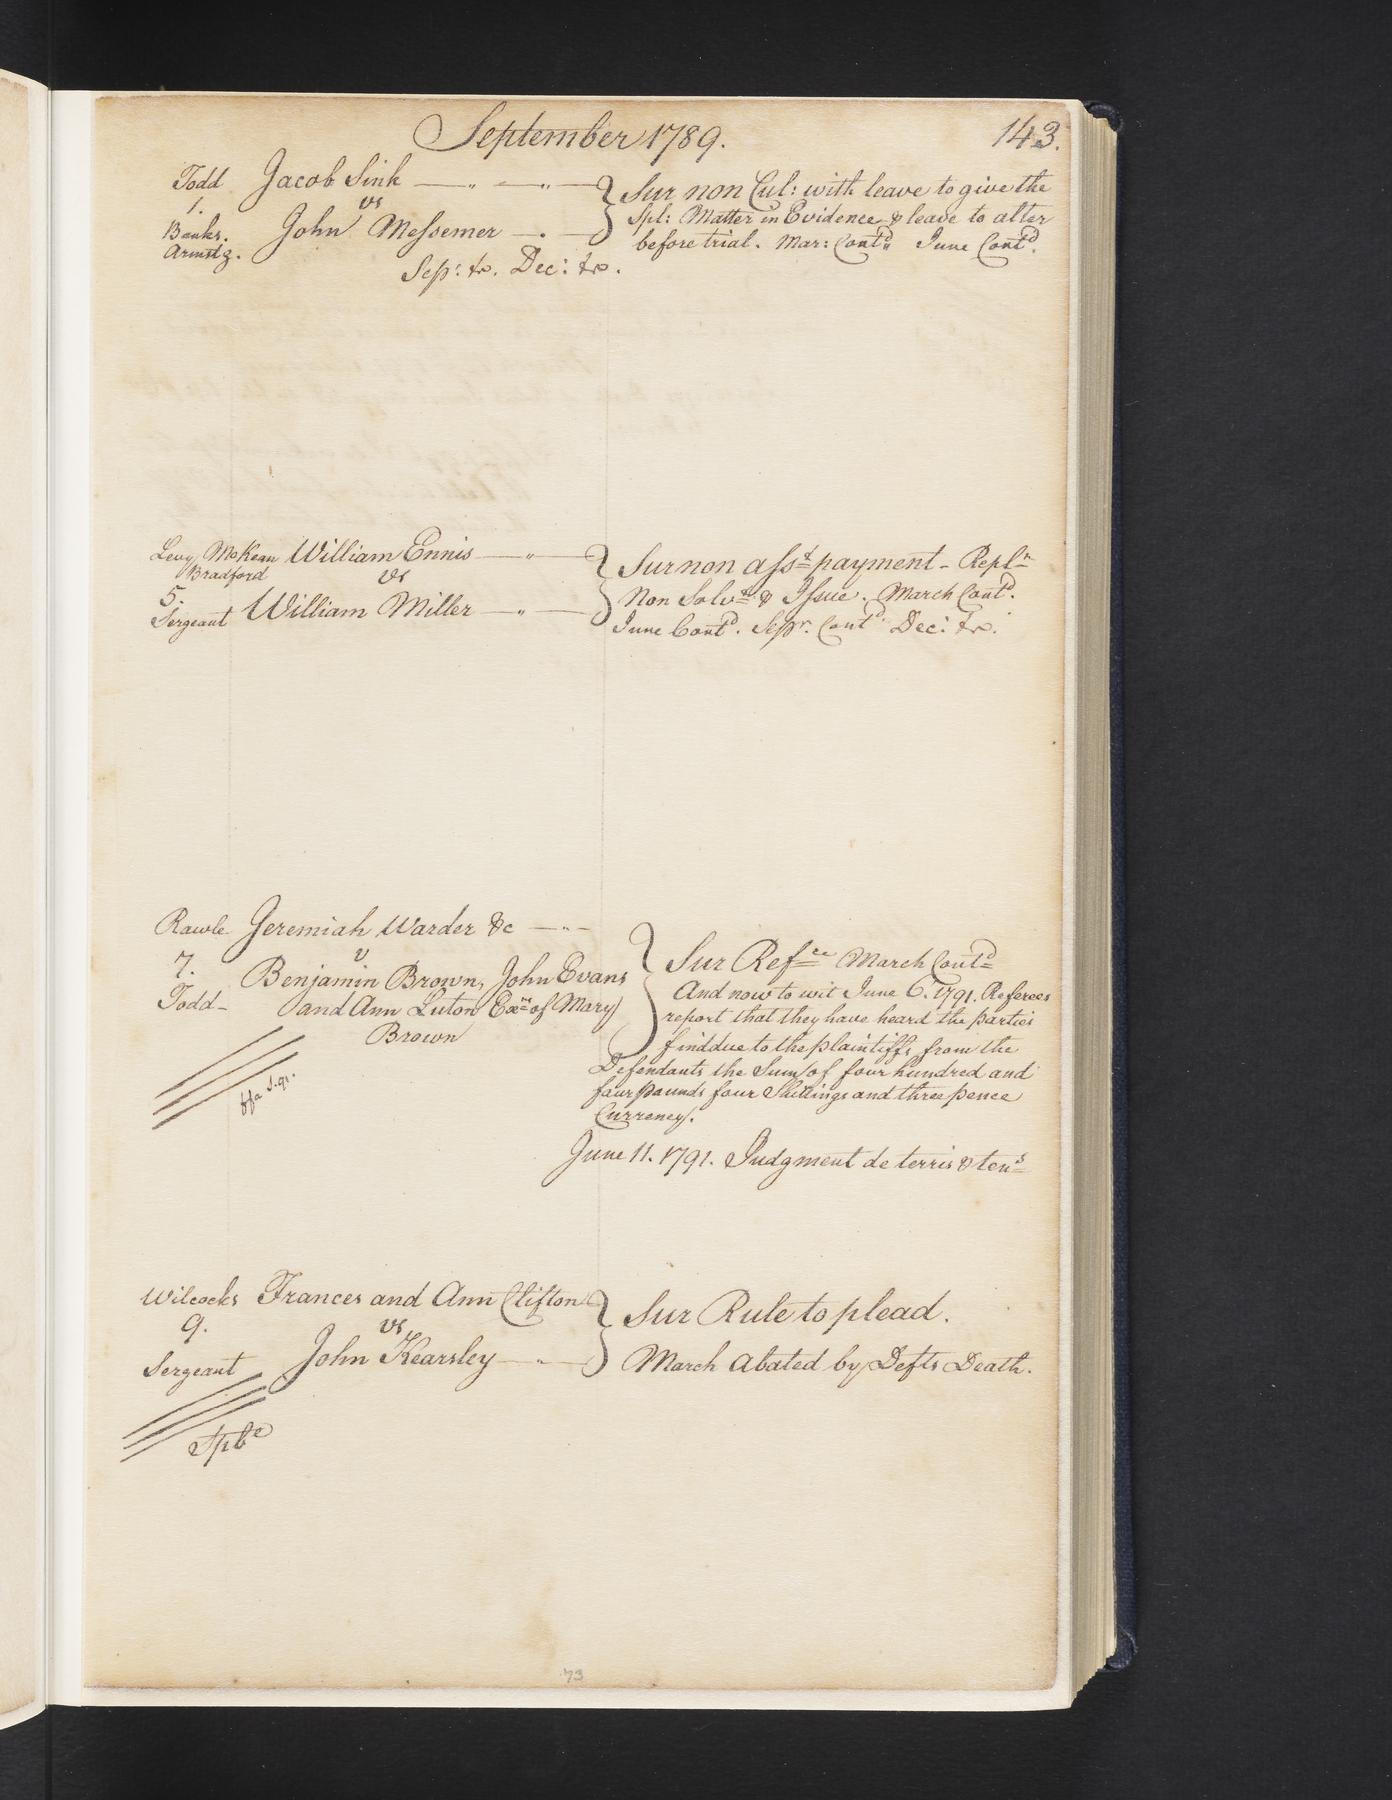 September 1789.
143.
Todd Jacob Sink
1. vs
Banks. John Messemer
Armstg.
Sur non Cul: with leave to give the
Spl: Matter in Evidence & leave to alter
before trial. Mar: Contd June Contd.
Sepr: &c. Dec: &c.
Levy McKean William Ennis
Bradford vs
5.
Sergeant William Miller
Sur non asst payment - Repln
Non Solvt & Issue. March Contd.
June Contd. Sepr. Contd. Dec: &c.
Rawle Jeremiah Warder &c
7. v
Benjamin Brown, John Evans
Todd - and Ann Luton Exrs of Mary
Brown
Sur Refce March Contd
And now to wit June 6. 1791. Referees
report that they have heard the parties
find due to the plaintiffs from the
Defendants the Sum of four hundred and
four pounds four Shillings and three pence
Currency.
June 11. 1791. Judgment de terris & tens
ffa S. 91.
Wilcocks Frances and Ann Clifton
9. vs
Sergeant John Kearsley
Sur Rule to plead.
March abated by Defts Death.
73